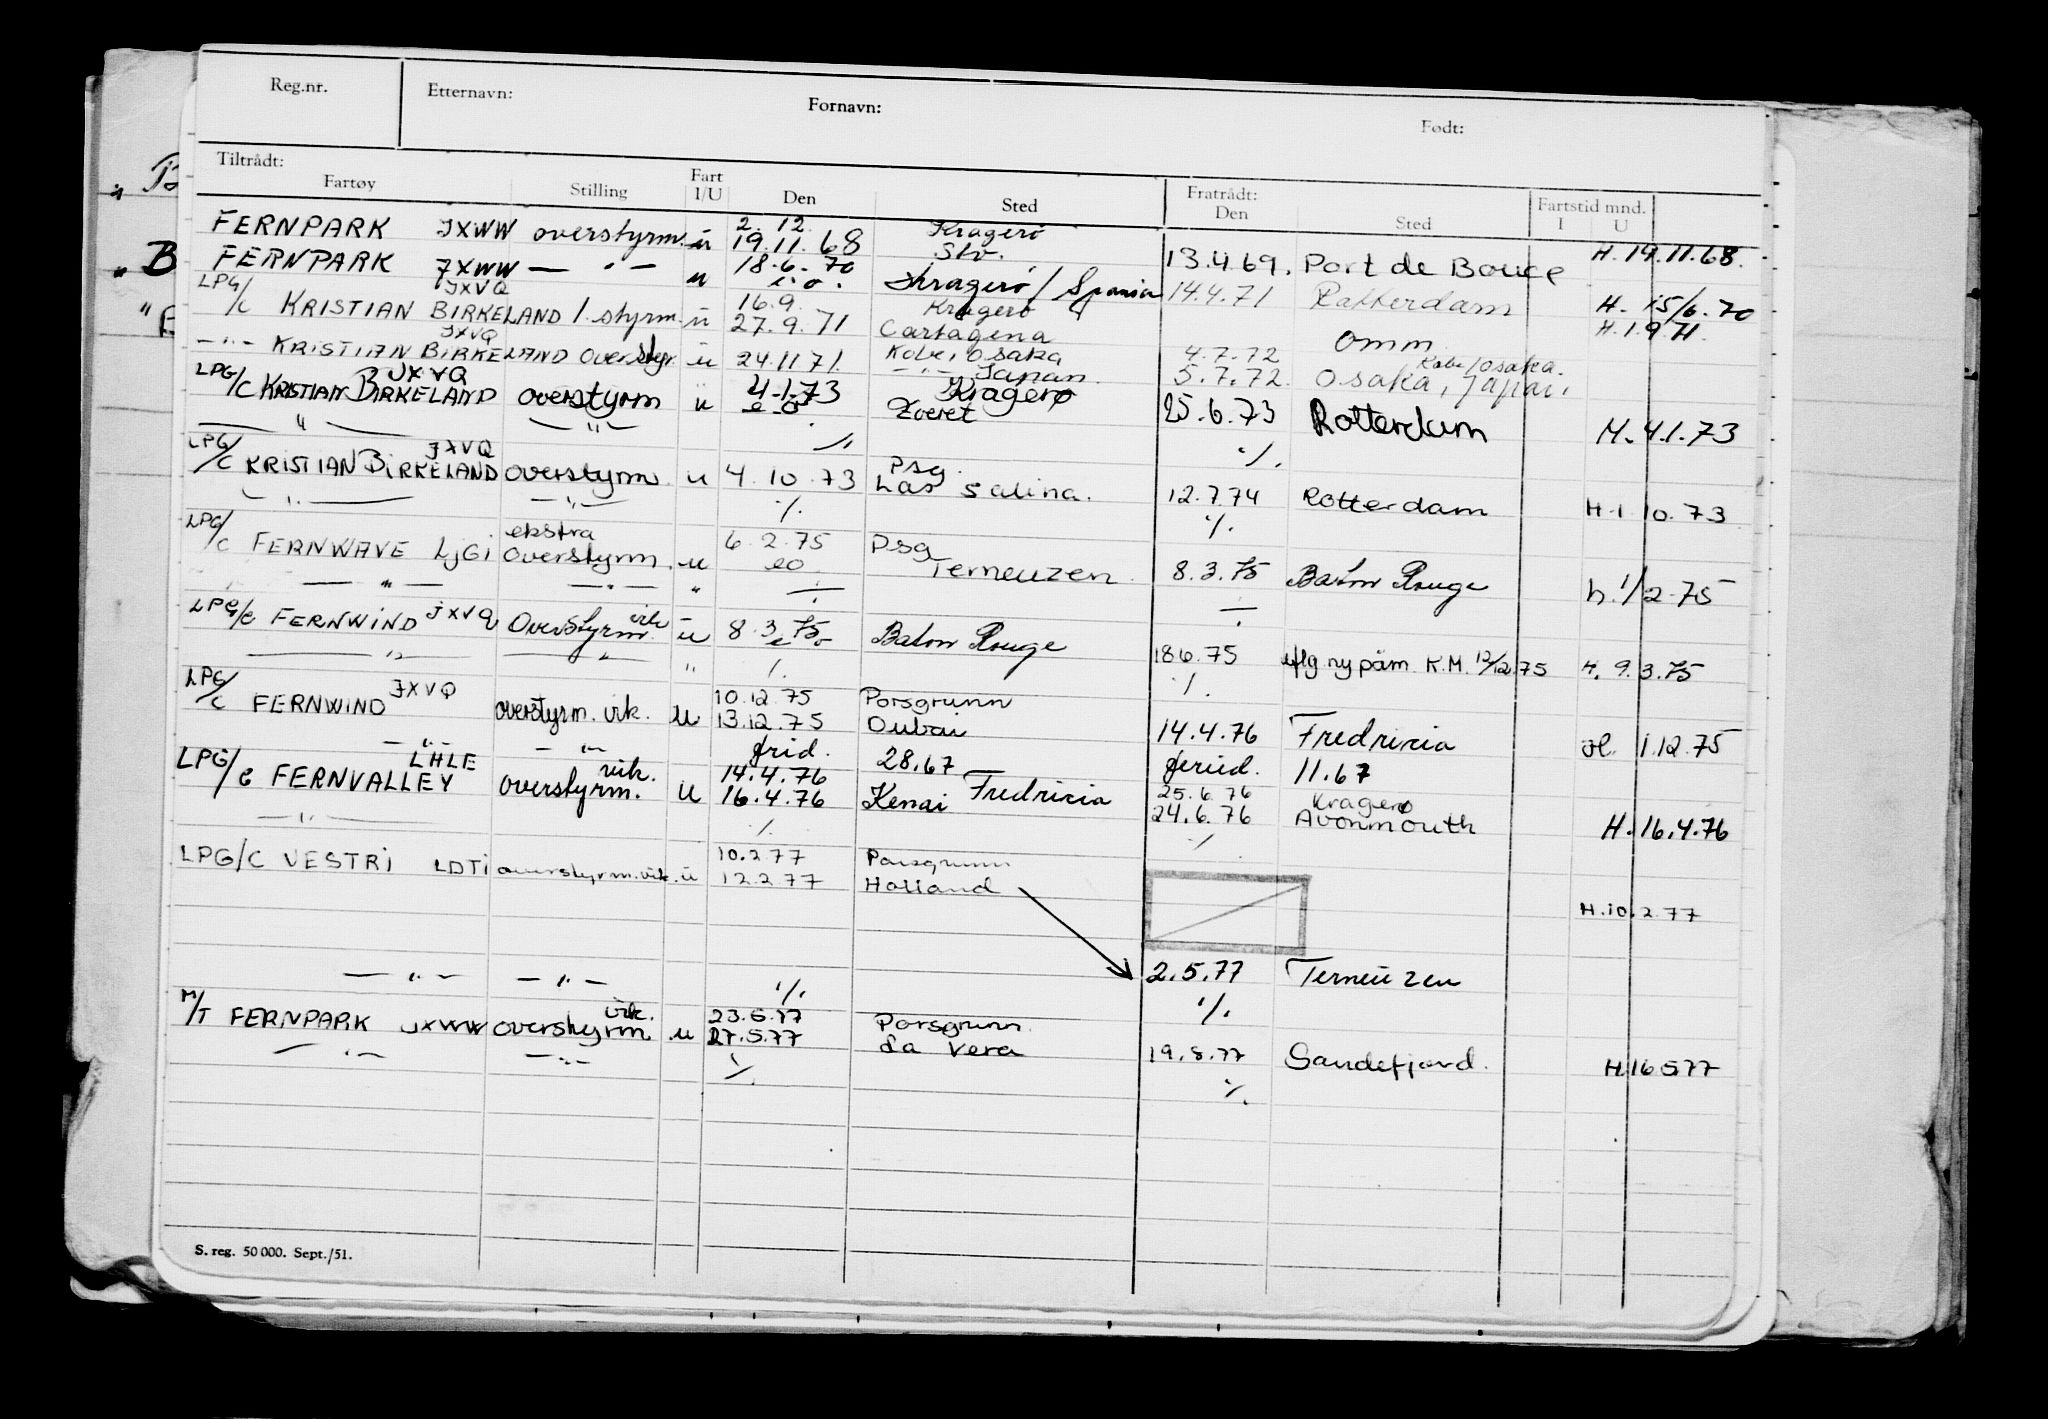 Reg.nr. Etternavn: Fornavn: Født:
Tiltrådt: Fratrådt:
Fartøy Stilling Fart I/U Den Sted Den Sted Fartstid mnd. I U
2. 12. Kragerø
FERNPARK JXWW overstyrm. u 19.11.68 Stv. 13.4.69. Port de Bouce H. 19.11.68.
FERNPARK JXWW — " — u 18.6.70 e.o. Kragerø / Spania 14.4.71 Rotterdam H. 15/6.70
LPG/C KRISTIAN BIRKELAND JXVQ 1. styrm. u 16.9. Kragerø
27.9.71 Cartagena omm H.1.9.71.
— " — KRISTIAN BIRKELAND JXVQ overstyr. u 24.11.71. Kobe, Osaka 4.7.72 Kobe/Osaka.
— " — Japan. 5.7.72. Osaka, Japan.
LPG/C KRISTIAN BIRKELAND JXVQ overstyrm u 4.1.73 Kragerø 25.6.73 Rotterdam M. 4.1.73
e.o. Everet
— " — — " — ·/. ·/.
LPG/C KRISTIAN BIRKELAND JXVQ overstyrm. u 4.10.73 Psg. Las Salina. 12.7.74 Rotterdam H. 1.10.73
— " — — " — ·/. ·/.
LPG/C FERNWAVE LJGI ekstra overstyrm. u 6.2.75 Psg
eo Terneuzen. 8.3.75 Baton Rouge h. 1/2-75
— " — — " — " ÷ ÷
LPG/C FERNWIND JXVQ Overstyrm. vik u 8.3.75 eo Baton Rouge 18.6.75 iflg ny påm. K.M. 12/12.75 H. 9.3.75
— " — — " — " ·/. ·/.
LPG/C FERNWIND JXVQ overstyrm. vik. u 10.12.75 Porsgrunn
13.12.75 Dubai 14.4.76 Fredricia H. 1.12.75
— " — — " — frid. 28.67 feried. 11.67
LPG/C FERNVALLEY LHLE overstyrm. vik. u 14.4.76 Fredricia 25.6.76 Kragerø
16.4.76 Kenai 24.6.76 Avonmouth H. 16.4.76
— " — ·/. ·/.
LPG/C VESTRI LDTI overstyrm. vik. u 10.2.77 Porsgrunn
12.2.77 Holland H.10.2.77
2.5.77 Terneuzen
— " — — " — ·/. ·/.
M/T FERNPARK JXWW overstyrm. vik. u 23.5.77 Porsgrunn.
27.5.77 La Vera 19.8.77 Sandefjord. H.16.5.77
— " — — " — ·/. ·/.
S. reg. 50 000. Sept./51.